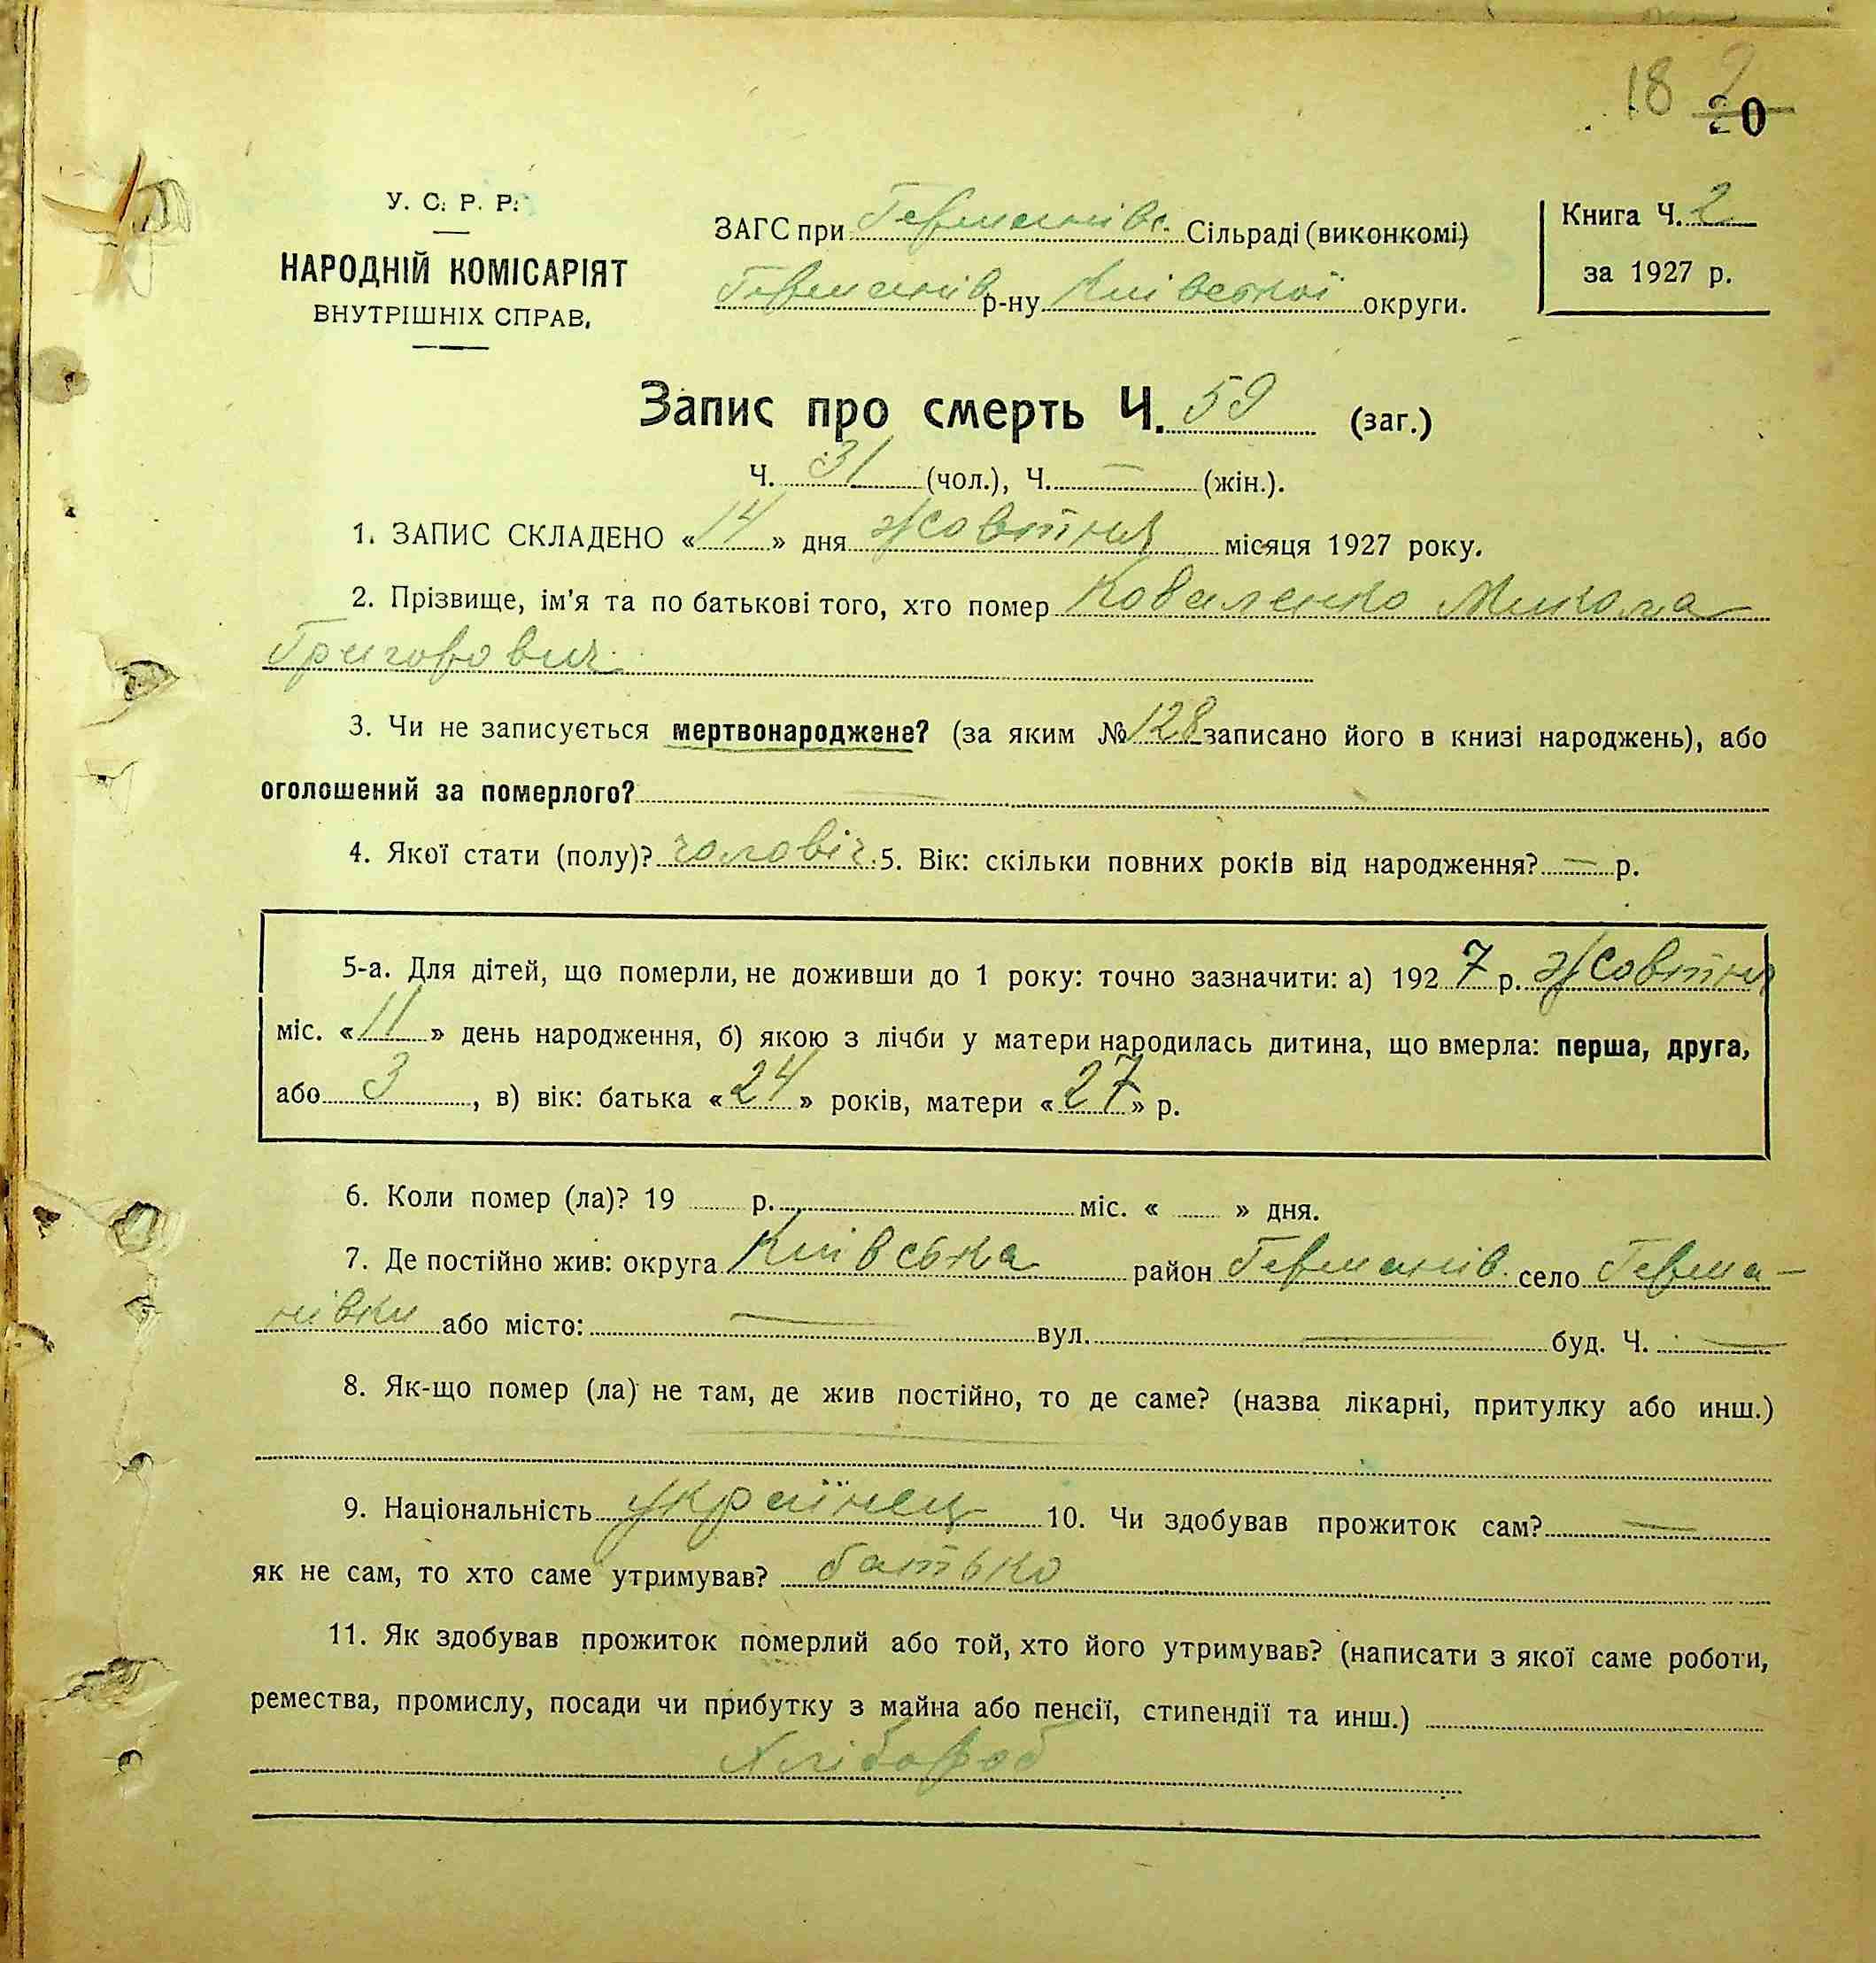 18 2
20
У. С. Р. Р.
НАРОДНІЙ КОМІСАРІЯТ
ВНУТРІШНІХ СПРАВ.
ЗАГС при Германівс. Сільраді (виконкомі)
Германів р-ну Київської округи.
Книга Ч. 2
за 1927 р.
Запис про смерть Ч. 59 (заг.)
Ч. 31 (чол.), Ч. — (жін.).
1. ЗАПИС СКЛАДЕНО «14» дня Жовтня місяця 1927 року.
2. Прізвище, ім'я та по батькові того, хто помер Коваленко Микола
Григорович
3. Чи не записується мертвонароджене? (за яким № 128 записано його в книзі народжень), або
оголошений за померлого? —
4. Якої стати (полу)? чоловіч. 5. Вік: скільки повних років від народження? — р.
5-а. Для дітей, що померли, не доживши до 1 року: точно зазначити: а) 1927 р. Жовтня
міс. «11» день народження, б) якою з лічби у матери народилась дитина, що вмерла: перша, друга,
або 3, в) вік: батька «24» років, матери «27» р.
6. Коли помер (ла)? 19 р. міс. « » дня.
7. Де постійно жив: округа Київська район Германів. село Герма-
нівки або місто: — вул. — буд. Ч. —
8. Як-що помер (ла) не там, де жив постійно, то де саме? (назва лікарні, притулку або инш.)
—
9. Національність українець 10. Чи здобував прожиток сам? —
як не сам, то хто саме утримував? батько
11. Як здобував прожиток померлий або той, хто його утримував? (написати з якої саме роботи,
ремества, промислу, посади чи прибутку з майна або пенсії, стипендії та инш.)
Хлібороб